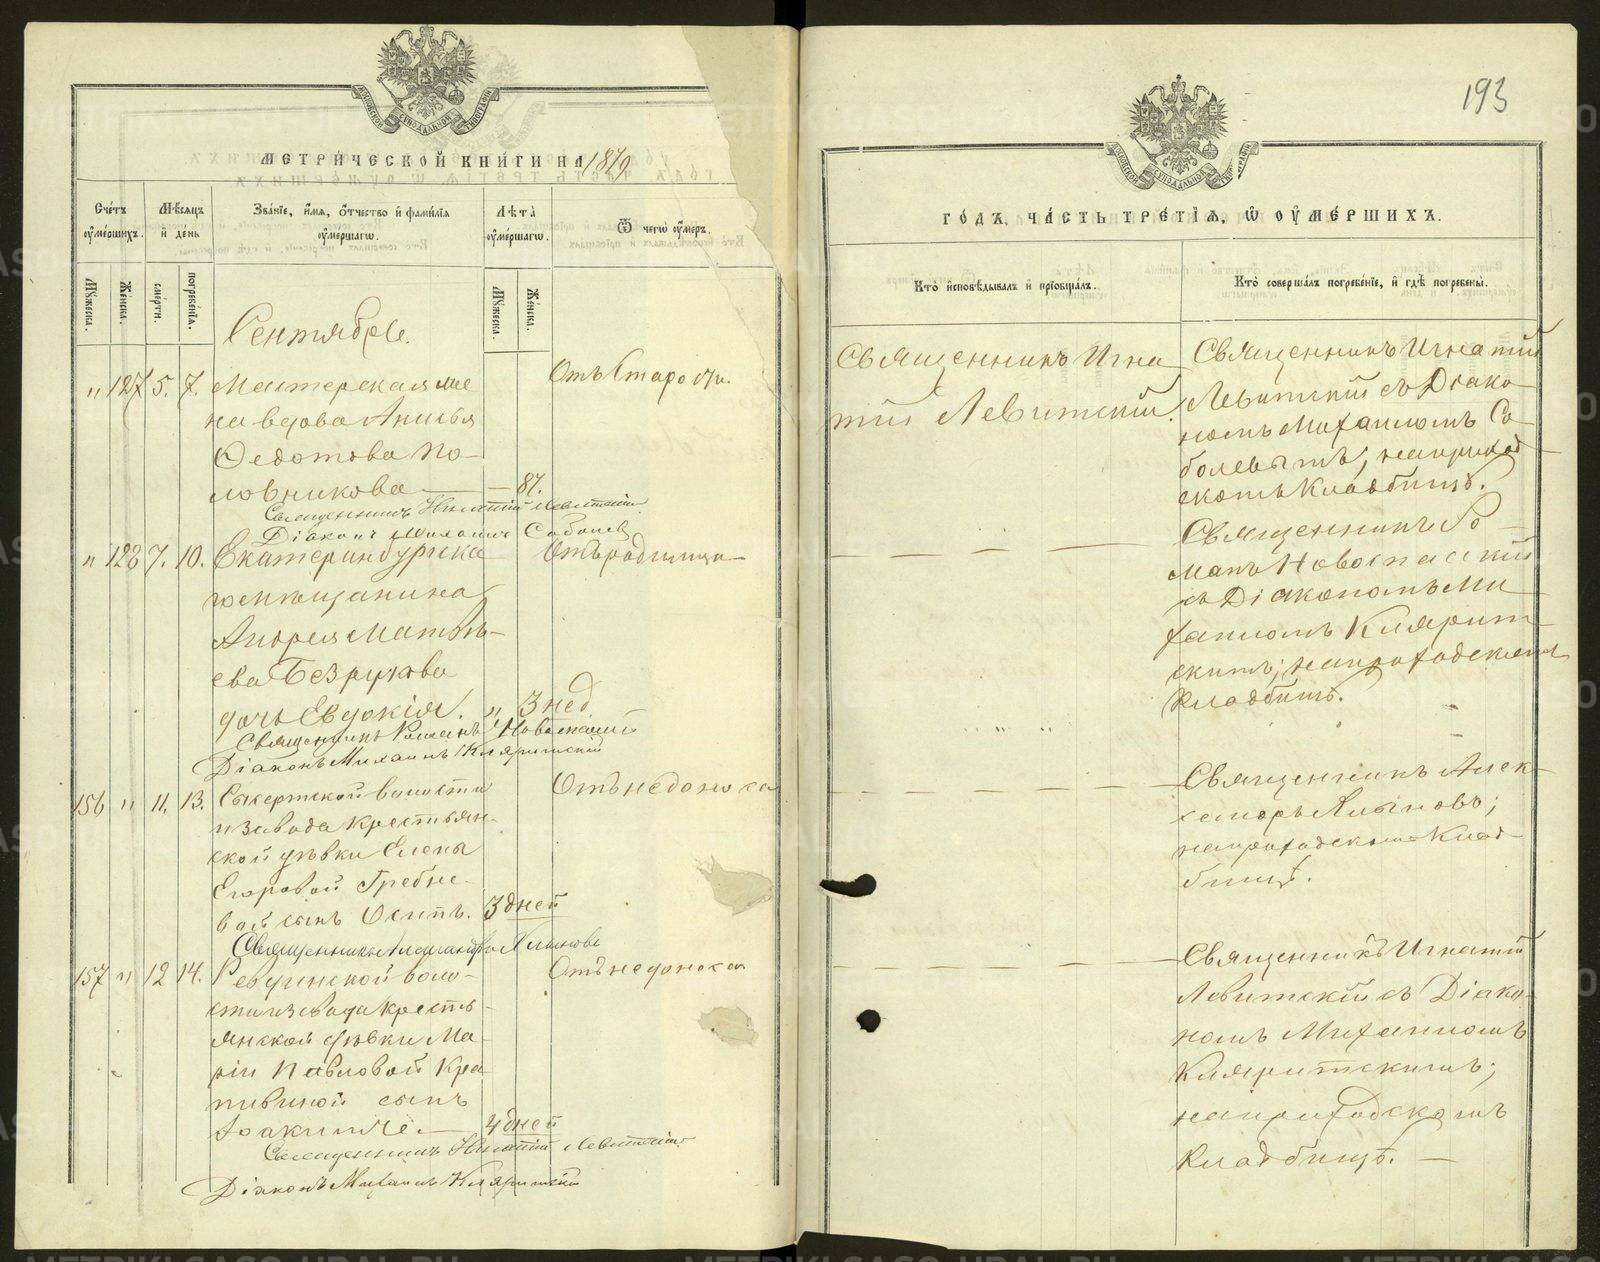 МЕТРИЧЕСКОЙ КНИГИ НА 1879
Счетъ умершихъ.
Мѣсяцъ и день
Званіе, имя, отчество и фамилія умершаго.
Лѣта умершаго.
Ѿ чего умеръ.
Мужеска.
Женска.
смерти.
погребенія.
Мужеска.
Женска.
Сентябре.
" 127 5. 7. Мастерская же
на вдова Анисья
Ѳедотова По-
ловникова — 87.
Отъ старости.
Священникъ Игнатій Левитскій
Діаконъ Михаилъ Соболев
" 128 7. 10. Екатеринбургска
го мѣщанина
Андрея Матвѣ-
ева Безрукова
дочь Евдокія. " 3 нед
Отъ родимца
Священникъ Романъ Новоспасскій
Діаконъ Михаилъ Кляритскій
156 " 11. 13. Сысертской волости
и завода крестьян-
ской дѣвки Елены
Егоровой Гребне-
вой сынъ Осипъ. 3 дней
Отъ недоноска
Священникъ Александръ
157 " 12 14. Ревдинской воло-
сти и завода кресть-
янской дѣвки Ма-
ріи Павловой Кра
пивиной сынъ
Іоакимъ — 4 дней
Отъ недоноска
Священникъ Игнатій Левитскій
Діаконъ Михаилъ Кляритскій
193
ГОДЪ, ЧАСТЬ ТРЕТІЯ, Ѿ УМЕРШИХЪ.
Кто исповѣдывалъ и пріобщалъ.
Кто совершалъ погребеніе, и гдѣ погребены.
Священникъ Игна
тій Левитскій.
Священникъ Игнатій
Левитскій съ Діако
номъ Михаиломъ Со
болевымъ; на приход
скомъ кладбищѣ.
Священникъ Ро-
манъ Новоспасскій
съ Діакономъ Ми
хаиломъ Кляритс
скимъ; на приходскомъ
кладбищѣ.
Священникъ Алек-
сандръ
на приходскомъ клад-
бищѣ.
Священникъ Игнатій
Левитскій съ Діако
номъ Михаиломъ
Кляритскимъ;
на приходскомъ
кладбищѣ. —